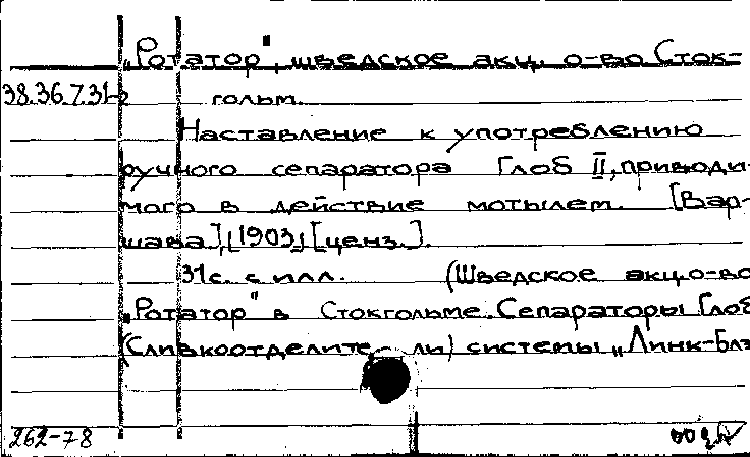 „Ротатор", шведское акц. о-во Сток-
38.36.7.31-2 гольм.
Наставление к употреблению
ручного сепаратора Глоб II, приводи-
мого в действие мотылем. [Вар-
шава], [1903] [ценз.].
31 с. с илл. (Шведское акц. о-во
„Ротатор" в Стокгольме. Сепараторы Глоб
(Сливкоотделители) системы „Линк-Блэ
262-78